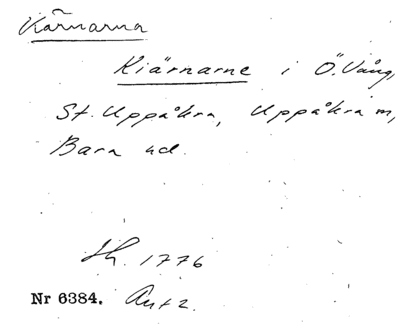 Kärnarna
Kiärnarne i Ö. Vång,
St. Uppåkra, Uppåkra sn,
Bara hd.
Sh. 1776
Nr 6384. Ant 2.